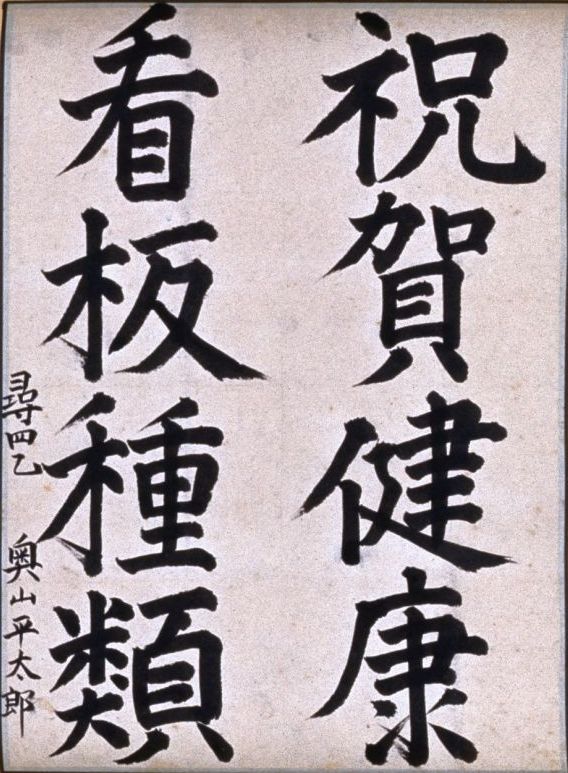 祝賀健康
看板種類
尋四乙 奥山平太郎